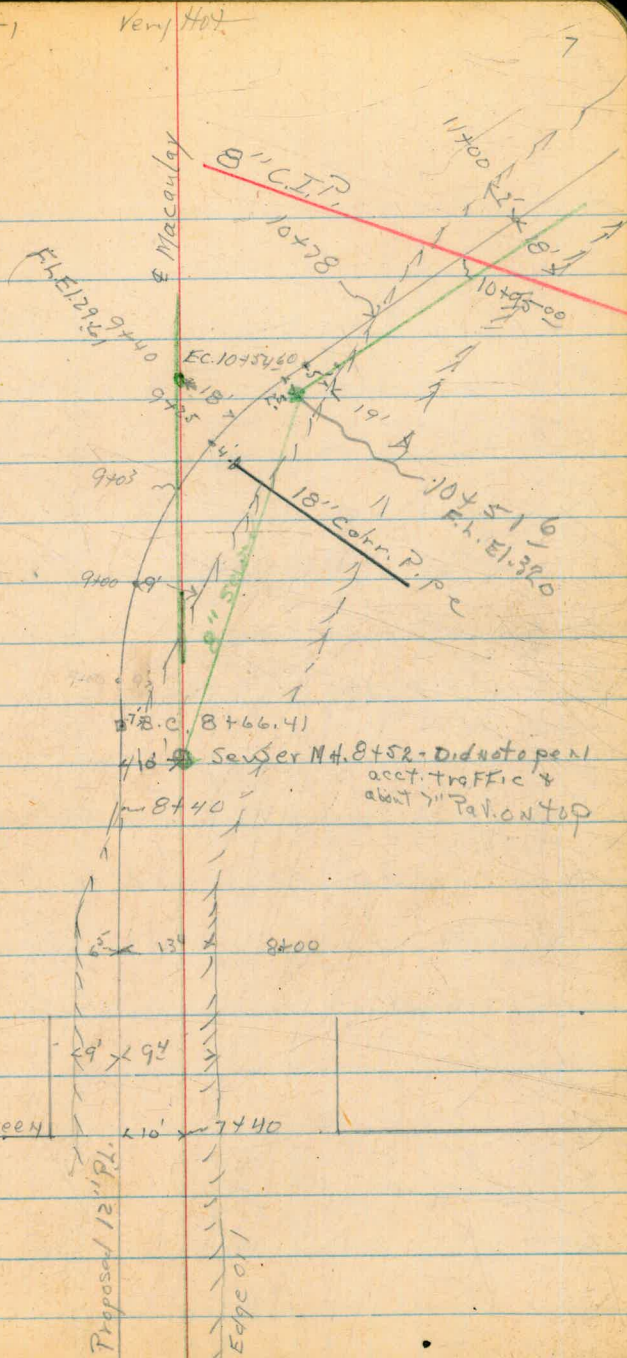 Very Hot
7
11+00
8" C.I.P.
℄ Macaulay
10+78
2'
8'
10+95.00
F.L.El.29.61
9+40
E.C. 10+54.60
5'
18'
9+25
19'
4'
9+03
10+51 6
F.L. El. 32.0
18" Corr. Pipe
9+00
9'
8" Sewer
7'
B.C. 8+66.41
Sewer M.H. 8+52 - Did not open
acct. traffic &
about 7" Pav. on top
8+40
6'
13 4
8+00
9'
9 4
10'
7+40
een
Proposed 12" P.L.
Edge oil